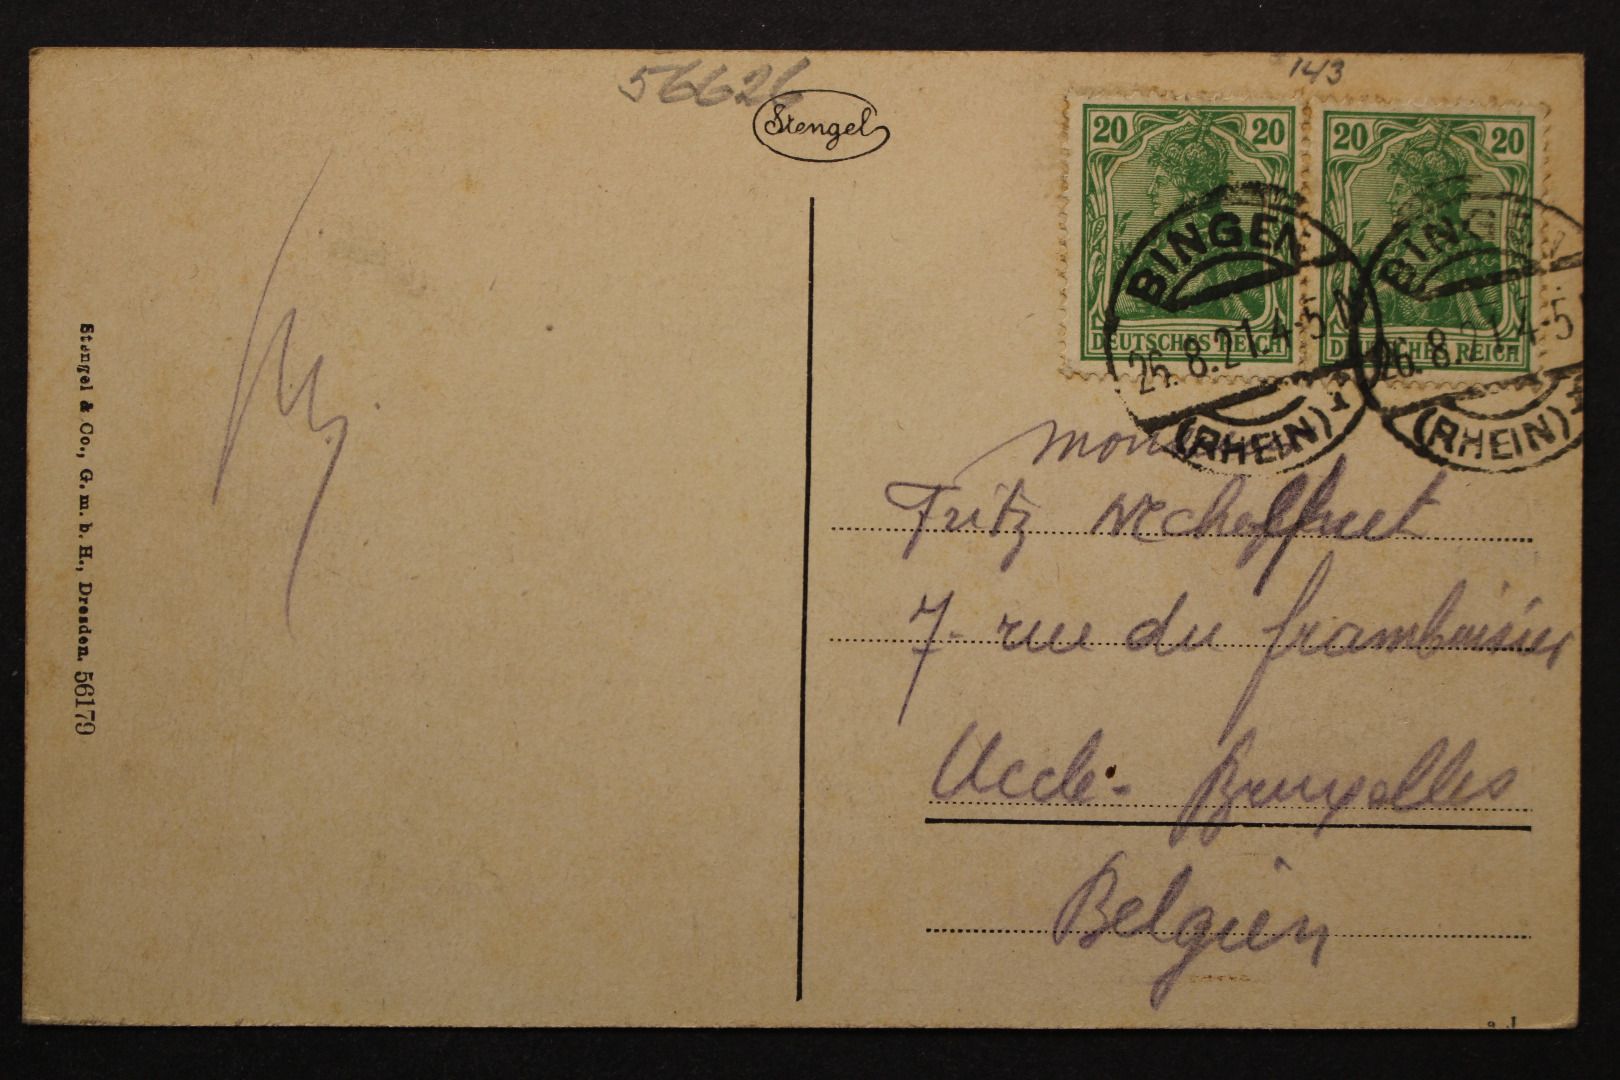 143
Stengel
20 20
20 20
DEUTSCHES REICH
DEUTSCHES REICH
BINGEN
26.8.21.4-5 N
(RHEIN)
BINGEN
26.8.21.4-5
(RHEIN)
Stengel & Co., G. m. b. H., Dresden. 56179
Fritz
7- rue du framboisier
Uccle - Bruxelles
Belgien